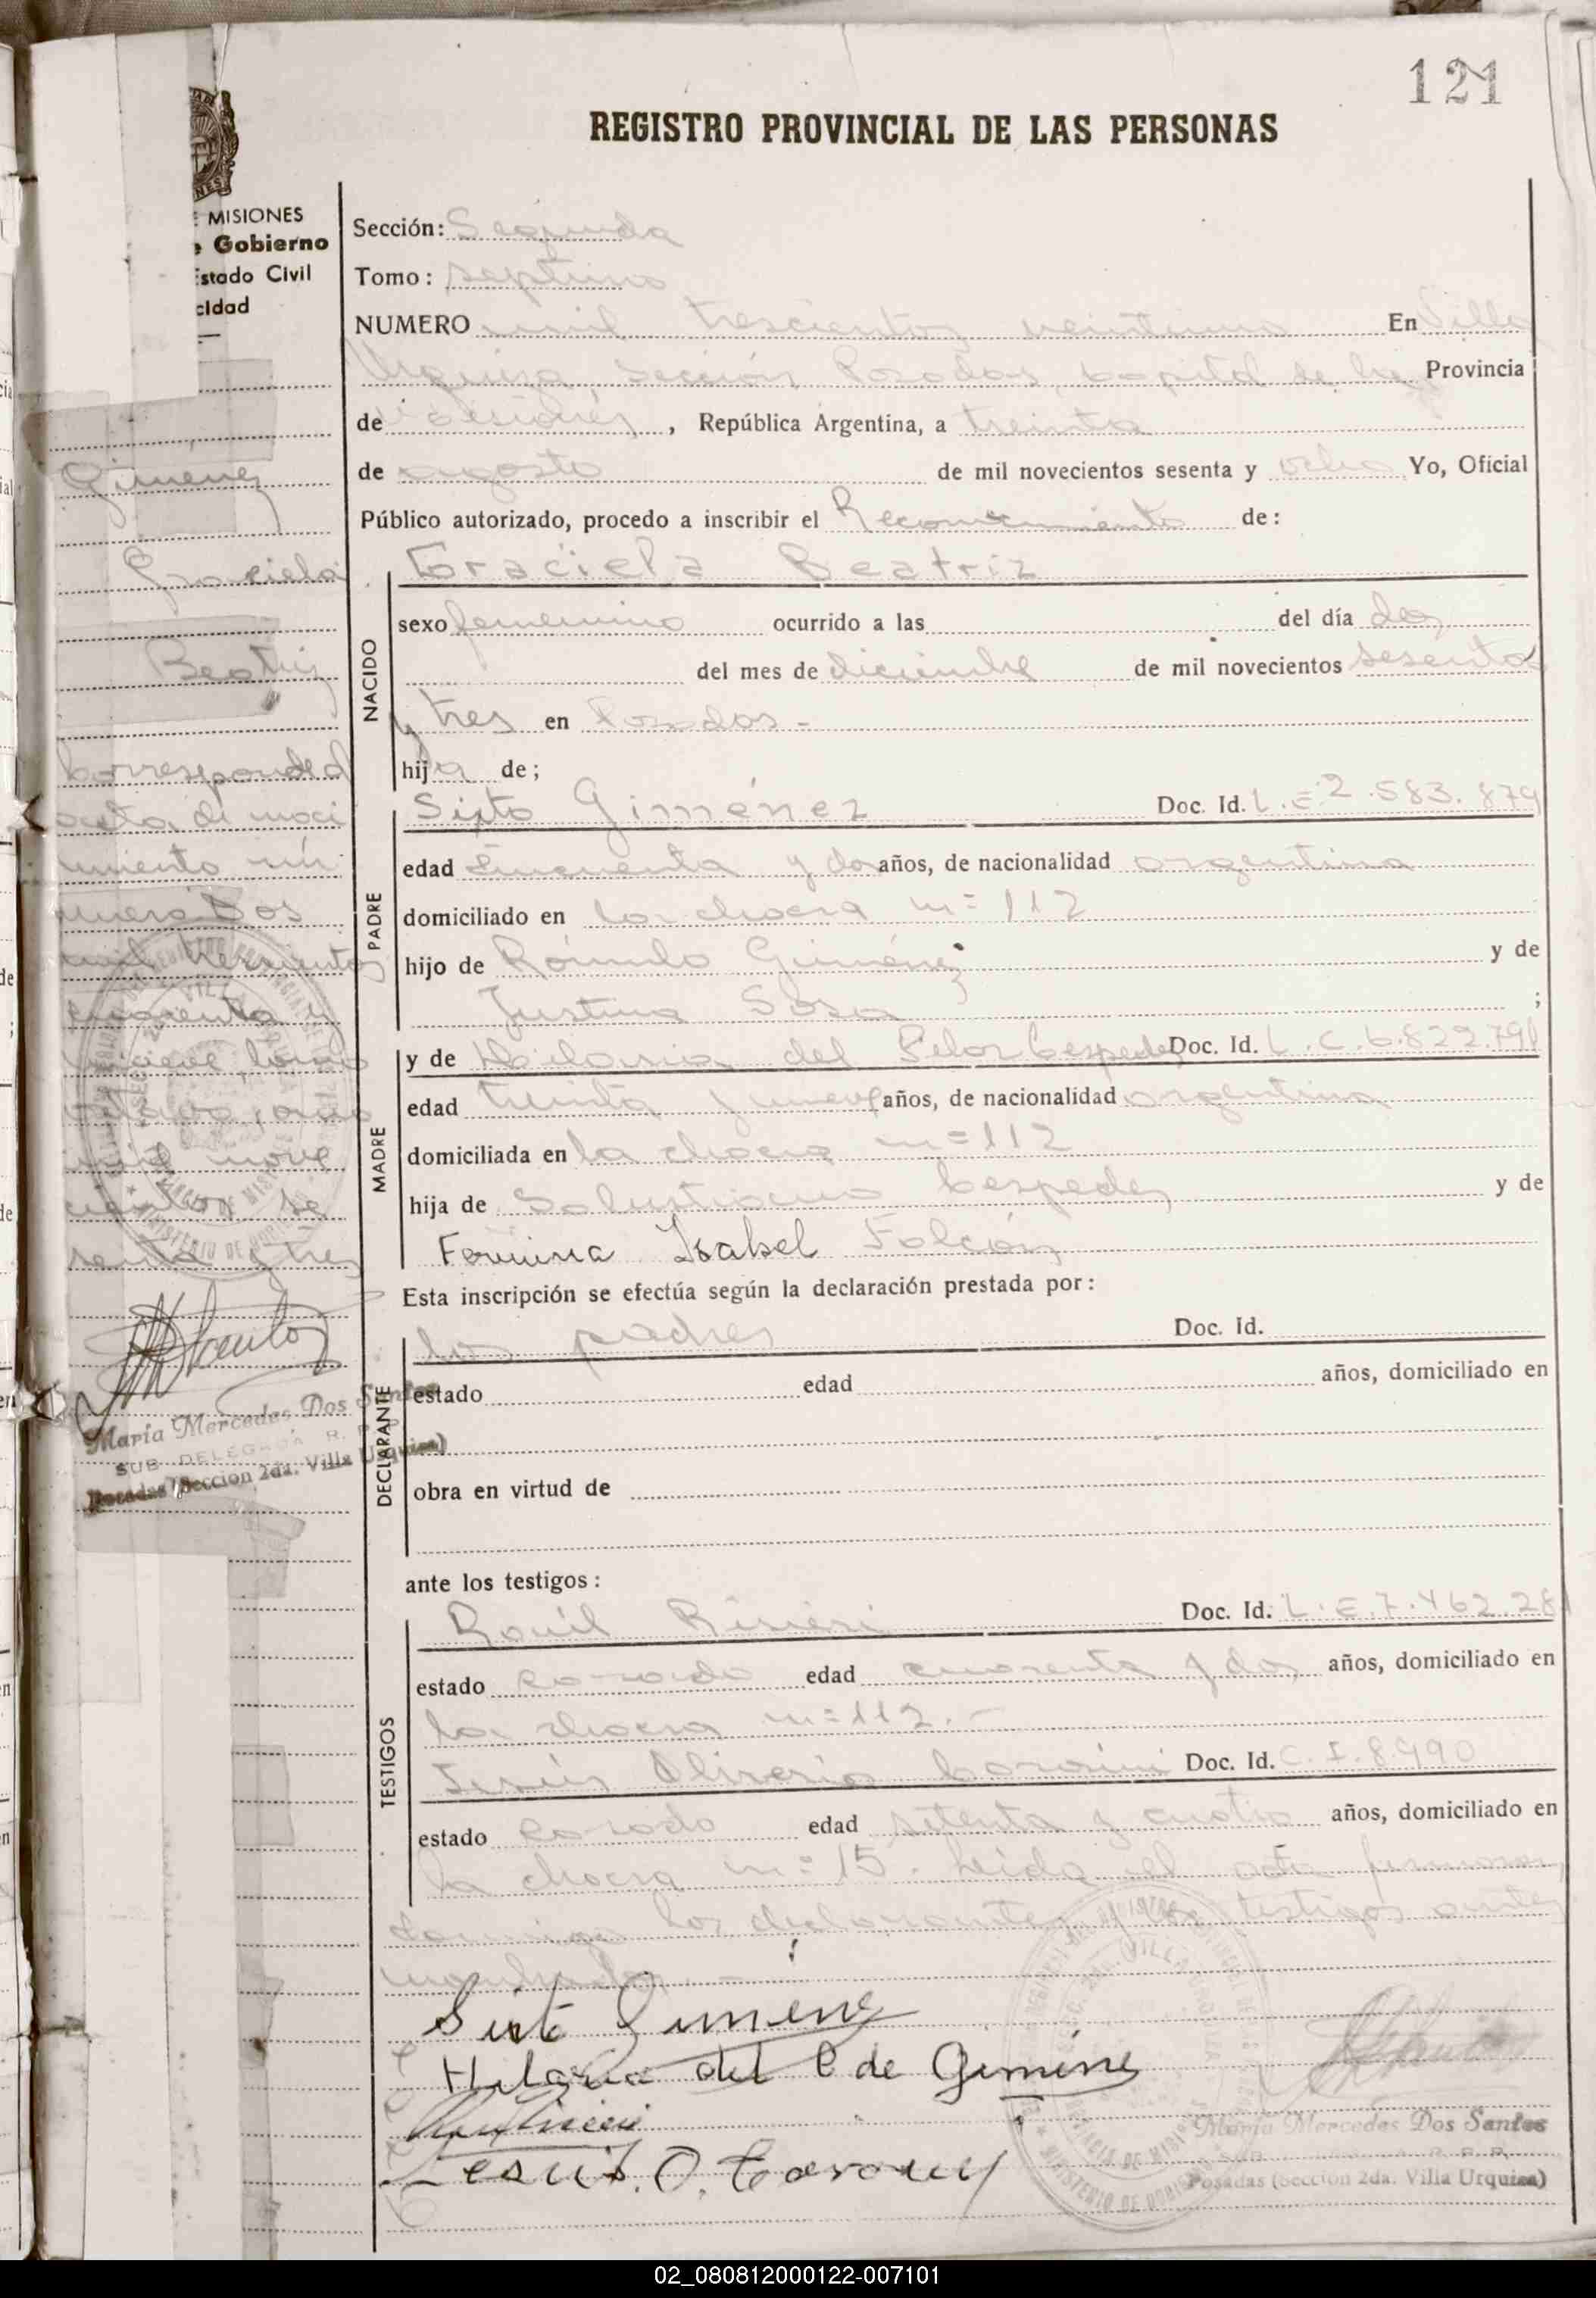 121
REGISTRO PROVINCIAL DE LAS PERSONAS
MISIONES
Gobierno
Estado Civil
cidad
Sección: Segunda
Tomo: septimo
NUMERO mil trescientos veintiuno En Villa
Urquiza, sección Posadas, capital de la Provincia
de Misiones, República Argentina, a treinta
de agosto de mil novecientos sesenta y ocho Yo, Oficial
Público autorizado, procedo a inscribir el Reconocimiento de:
Graciela Beatriz
NACIDO
sexo femenino ocurrido a las del día dos
del mes de diciembre de mil novecientos sesenta
y tres en Posadas.-
hija de;
PADRE
Sixto Giménez Doc. Id. L.E. 2.583.879
edad cincuenta y dos años, de nacionalidad argentina
domiciliado en la chacra nº 112
hijo de Rómulo Giménez y de
Justina Sosa ;
MADRE
y de Hilaria del Pilar Cespedes Doc. Id. L.C. 6.822.791
edad treinta y nueve años, de nacionalidad argentina
domiciliada en la chacra nº 112
hija de Salustiano Cespedes y de
Fermina Isabel Falcón
Esta inscripción se efectúa según la declaración prestada por:
DECLARANTE
los padres Doc. Id.
estado edad años, domiciliado en
obra en virtud de
ante los testigos:
TESTIGOS
Raúl Doc. Id: L.E. 7.462.28
estado casado edad cuarenta y dos años, domiciliado en
la chacra nº 112.-
Jesús Oliverio Doc. Id. C.I. 8.990
estado casado edad setenta y cuatro años, domiciliado en
la chacra nº 15. Leída el acta firmaron
conmigo los declarantes y los testigos antes
nombrados.-
Sixto Gimenez
Hilaria del C de Gimenez
Jesús. O.
María Mercedes Dos Santos
SUB DELEGADA R. P. P.
Posadas (Sección 2da. Villa Urquiza)
Gimenez
Graciela
Beatriz
Corresponde al
acta de naci
miento nú
mero Dos
mil trescientos
cincuenta y
nueve, tomo
octavo, año
mil nove
cientos se
senta y tres
María Mercedes Dos Santos
SUB DELEGADA R. P. P.
Posadas (Sección 2da. Villa Urquiza)
02_080812000122-007101